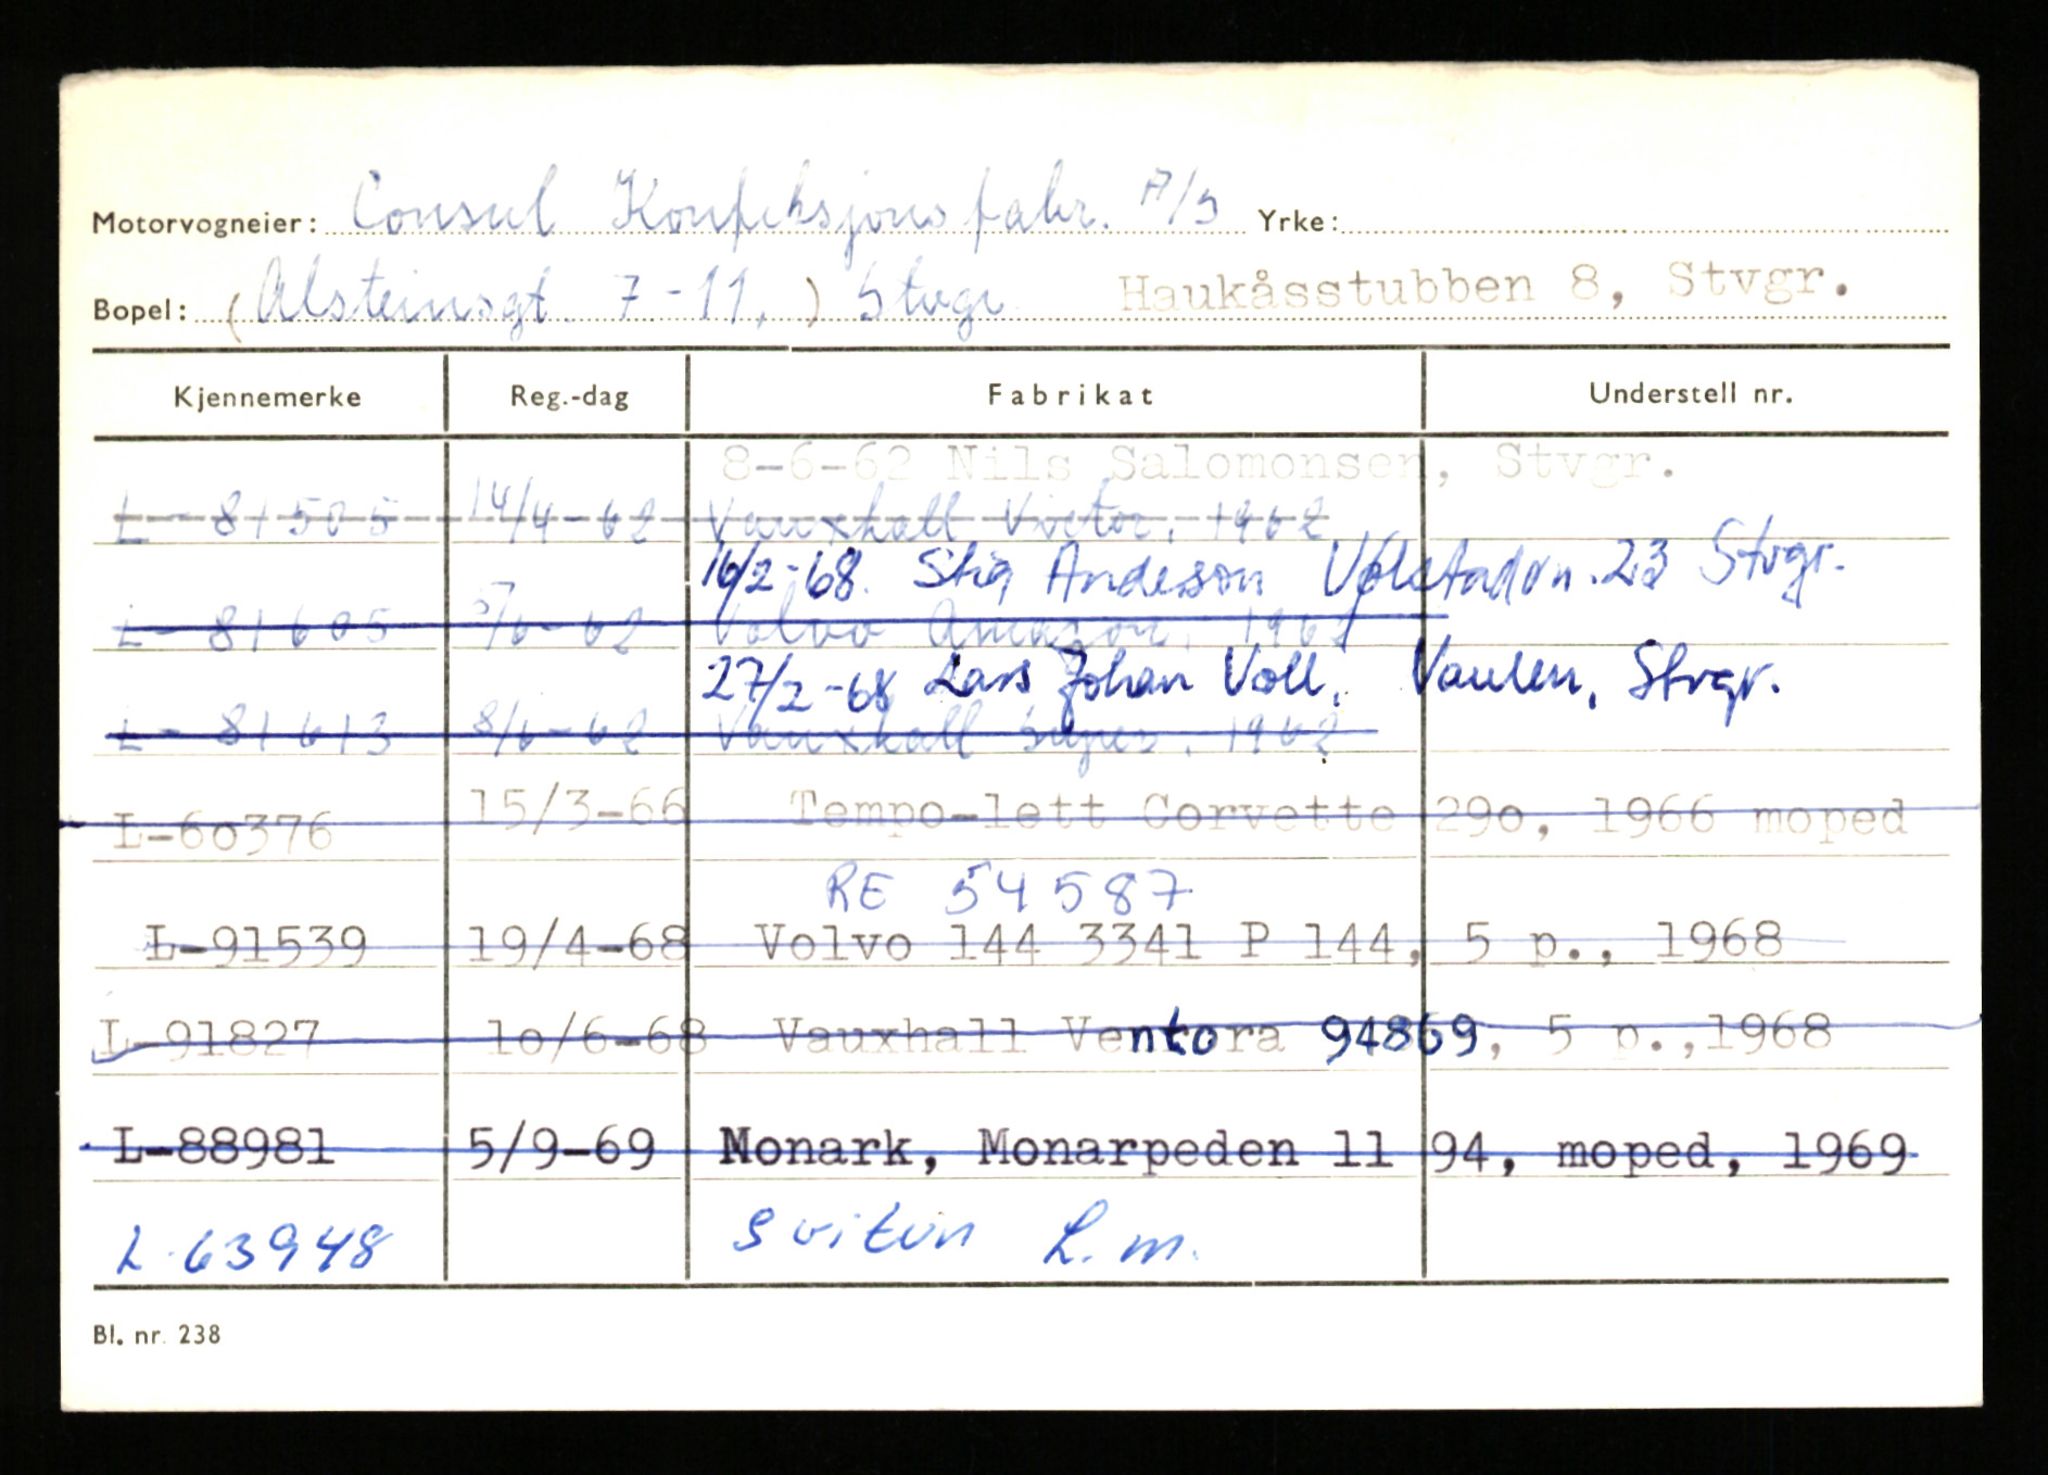 Motorvogneier: Consul Konfeksjonsfabr. A/S Yrke:
Bopel: (Alsteinsgt. 7-11.) Stvgr Haukåsstubben 8, Stvgr.
Kjennemerke Reg.-dag Fabrikat Understell nr.
8-6-62 Nils Salomonsen, Stvgr.
L-81505 14/4-62 Vauxhall Victor, 1962
16/2-68. Stig Anderson 23 Stvgr.
L-81605 5/6-62 Volvo Amazon, 1962
27/2-68 Lars Johan Voll, Vaulen, Stvgr.
L-81613 8/6-62 Vauxhall Super, 1962
L-60376 15/3-66 Tempo-lett Corvette 29o, 1966 moped
RE 54587
L-91539 19/4-68 Volvo 144 3341 P 144, 5 p., 1968
L-91827 1o/6-68 Vauxhall Ventora 94869, 5 p.,1968
L-88981 5/9-69 Monark, Monarpeden 11 94, moped, 1969
L-63948 Svitun L.m.
Bl. nr. 238